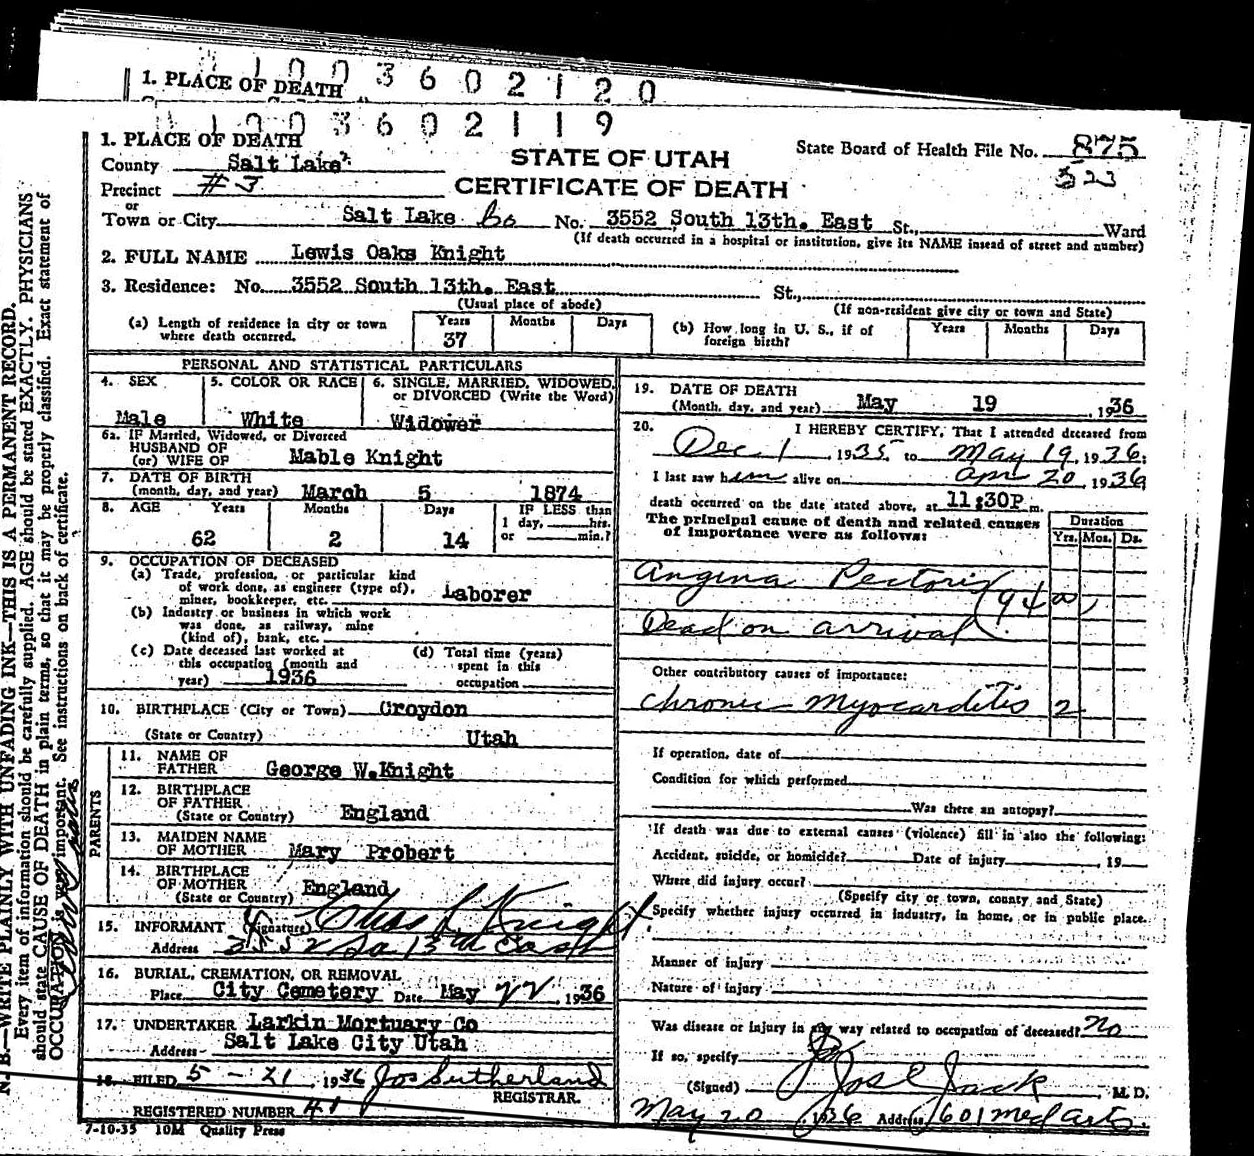 1. PLACE OF DEATH
1 0 0 3 6 0 2 1 2 0
1 0 0 3 6 0 2 1 1 9
1. PLACE OF DEATH
County Salt Lake
Precinct #3
or
Town or City Salt Lake Co No. 3552 South 13th. East St., Ward
(If death occurred in a hospital or institution, give its NAME insead of street and number)
STATE OF UTAH
CERTIFICATE OF DEATH
State Board of Health File No. 875
523
2. FULL NAME Lewis Oaks Knight
3. Residence: No. 3552 South 13th. East St.,
(Usual place of abode)
(If non-resident give city or town and State)
(a) Length of residence in city or town where death occurred. Years 37 Months Days
(b) How long in U. S., if of foreign birth? Years Months Days
PERSONAL AND STATISTICAL PARTICULARS
4. SEX Male
5. COLOR OR RACE White
6. SINGLE, MARRIED, WIDOWED, or DIVORCED (Write the Word) Widower
6a. IF Married, Widowed, or Divorced
HUSBAND OF
(or) WIFE OF Mable Knight
7. DATE OF BIRTH
(month, day, and year) March 5 1874
8. AGE Years Months Days IF LESS than
1 day, hrs.
or min.?
62 2 14
9. OCCUPATION OF DECEASED
(a) Trade, profession, or particular kind
of work done, as engineer (type of),
miner, bookkeeper, etc. Laborer
(b) Industry or business in which work
was done, as railway, mine
(kind of), bank, etc.
(c) Date deceased last worked at
this occupation (month and
year) 1936
(d) Total time (years)
spent in this
occupation
10. BIRTHPLACE (City or Town) Croydon
(State or Country) Utah
PARENTS
11. NAME OF
FATHER George W.Knight
12. BIRTHPLACE
OF FATHER
(State or Country) England
13. MAIDEN NAME
OF MOTHER Mary Probert
14. BIRTHPLACE
OF MOTHER
(State or Country) England
15. INFORMANT (Signature) Chas L Knight
Address 3552 So 13th East
16. BURIAL, CREMATION, OR REMOVAL
Place City Cemetery Date May 22, 1936
17. UNDERTAKER Larkin Mortuary Co
Address Salt Lake City Utah
18. FILED 5 - 21, 1936 Jos Sutherland
REGISTRAR.
REGISTERED NUMBER 41
7-10-35 10M Quality Press
19. DATE OF DEATH
(Month, day, and year) May 19, 1936
20. I HEREBY CERTIFY, That I attended deceased from
Dec 1, 1935, to May 19, 1936,
I last saw him alive on Apr 20, 1936,
death occurred on the date stated above, at 11:30P m.
The principal cause of death and related causes
of importance were as follows:
Duration
Yrs. Mos. Ds.
Angina Pectoris (94a)
Dead on arrival
Other contributory causes of importance:
Chronic Myocarditis 2
If operation, date of
Condition for which performed
Was there an autopsy?
If death was due to external causes (violence) fill in also the following:
Accident, suicide, or homicide? Date of injury , 19
Where did injury occur?
(Specify city or town, county and State)
Specify whether injury occurred in industry, in home, or in public place.
Manner of injury
Nature of injury
Was disease or injury in any way related to occupation of deceased? No
If so, specify
(Signed) Jos E Jack, M. D.
May 20, 1936 Address 601 Med Arts.
N. B.—WRITE PLAINLY WITH UNFADING INK—THIS IS A PERMANENT RECORD.
Every item of information should be carefully supplied. AGE should be stated EXACTLY. PHYSICIANS
should state CAUSE OF DEATH in plain terms, so that it may be properly classified. Exact statement of
OCCUPATION is very important. See instructions on back of certificate.